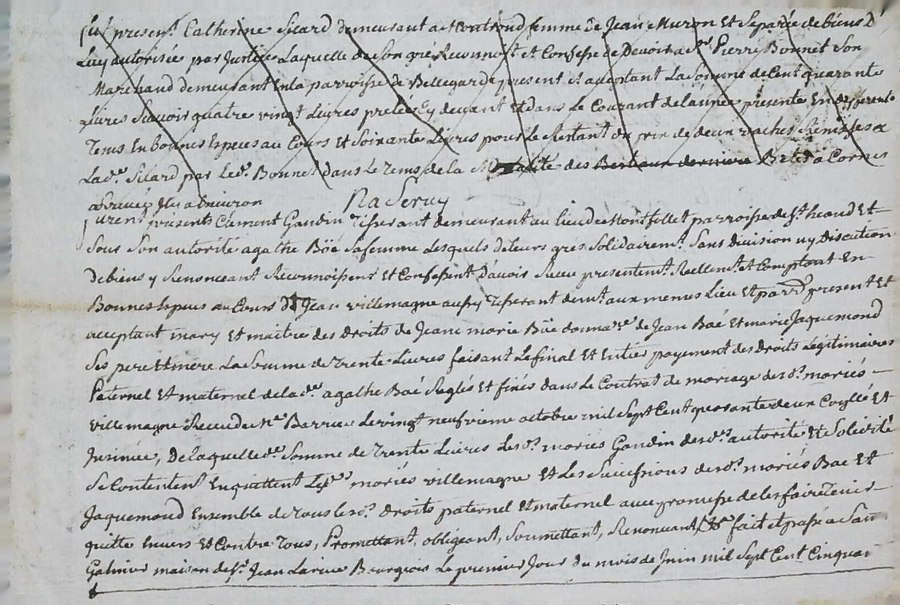 fut present Catherine Sicard demeurant a Montrond femme de Jean Muron et separée de biens d
luy autorisée par justice Laquelle de son gré Reconnoist et Confesse de Devoir a Sr. Pierre Bonnet son
Marchand demeurant en la parroisse de Bellegarde present et acceptant La somme de Cent quarante
Livres Scavoir quatre vingt Livres prete cy devant et dans Le Courant de lannée presente En differents
Tems En bonnes especes au Cours et Soixante Livres pour Le Restant du prix de deux vaches Remises a
Lade. Sicard par Led. Bonnet dans Le Tems de la Mortalité des Bestiaux derniere Betes a Cornes
arrivée il y a environ
Na Servy
furent presents Clement Gaudin Tisserant demeurant au lieu de Montfellet parroisse de St. heand Et
Sous Son autorité agathe Böe Sa femme Lesquels de leurs gres Solidairemt. Sans division ny Discution
de biens y Renonceant Reconnoissent Et Confessent Davoir Receu presentemt. Reellemt. et Comptant En
Bonnes especes au Cours De Jean villemagne aussy Tisserant demt. aux memes Lieu Et parrse. present Et
acceptant mary Et maitre des Droits de Jeane marie Böe donnare. de Jean Baé Et marie Jaquemond
Ses pere Et mere La Somme de Trente Livres faisant Le final Et Entier payement des Droits Legitimaires
Paternel Et maternel de lade. agathe Baé Reglés Et fixés dans Le Contrat de mariage desds. mariés
villemagne Receu de Me. Barrue Le vingt neufvieme octobre mil Sept Cent quarante deux Coyllé Et
Insinué, De laquelle de. Somme de Trente Livres Lesds. mariés Gaudin desds. autorité Et Solidité
Se Contentent En quittent Lesds. mariés villemagne Et Les Successions desds. mariés Bae Et
Jaquemond Ensemble de Tous lesds. Droits paternel Et maternel avec promesse de les faire Tenir
quitte Envers Et Contre Tous, Promettant, obligeant, Soumettant, Renonceant, &e. fait et passé a Saint
Galmier maison de Sr. Jean Larue Bourgeois Le premier Jour du mois de Juin mil Sept Cent Cinquan